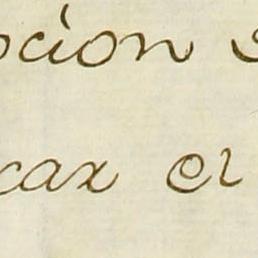 ocion s
car el